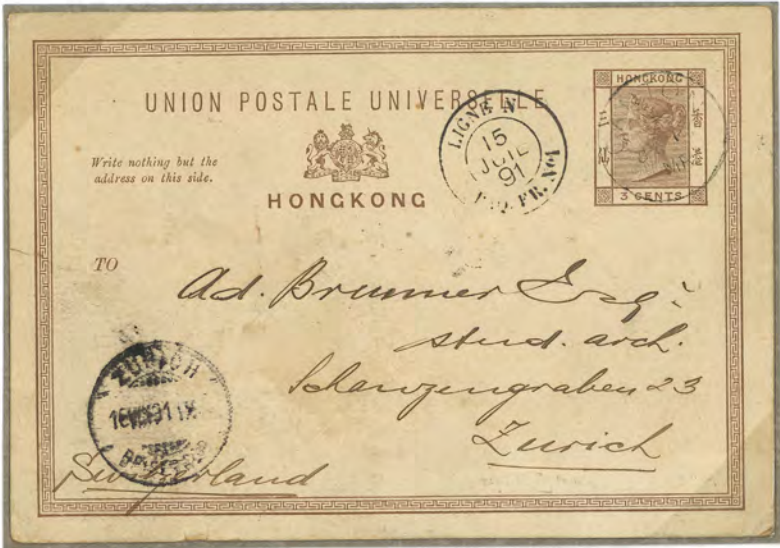 UNION POSTALE UNIVERSELLE
Write nothing but the
address on this side.
HONGKONG
LIGNE N
15
JUIL
91
FR. No1
HONGKONG
3 CENTS
TO
Ad. Brunner Esq:
stud. arch.
Schanzengraben 23
Zurich
Switzerland
ZÜRICH